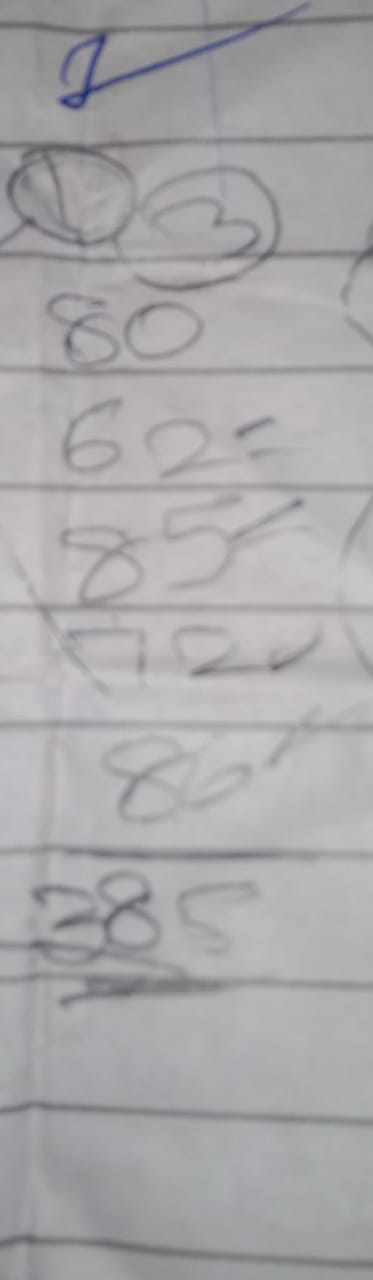 1 3
80
62
85
72
86
385